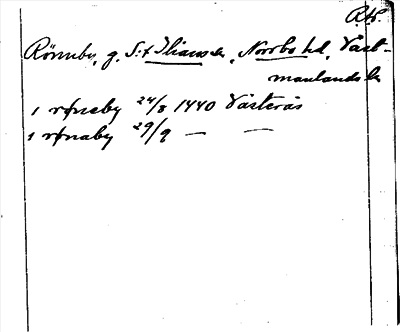 R.A.
Rönnby, g. S:t Ilians sn, Norrbo hd, Väst-
manlands l.
1 rønaby 24/8 1440 Västerås
1 rønaby 29/9 — —